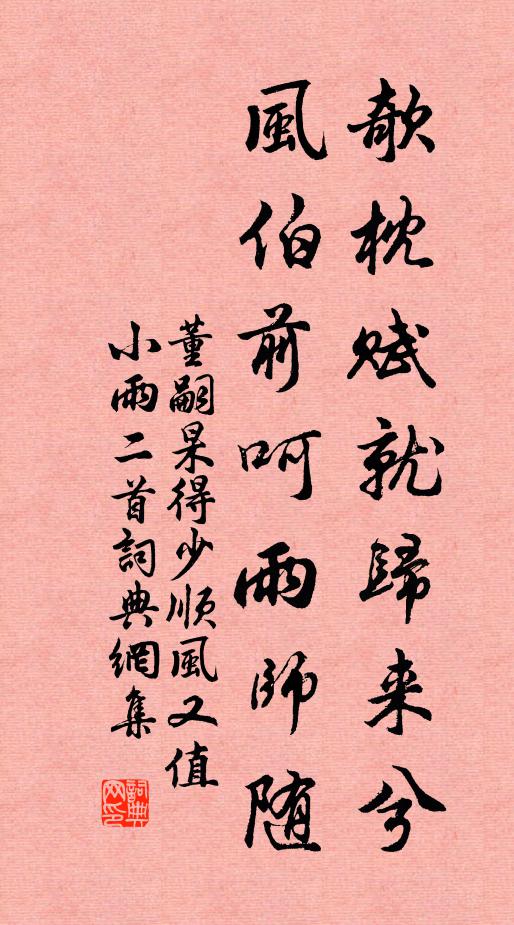 欹枕賦就歸来兮
風伯前呵雨師随
董嗣杲得少順風又值
小雨二首詞典網集
詞典
网印